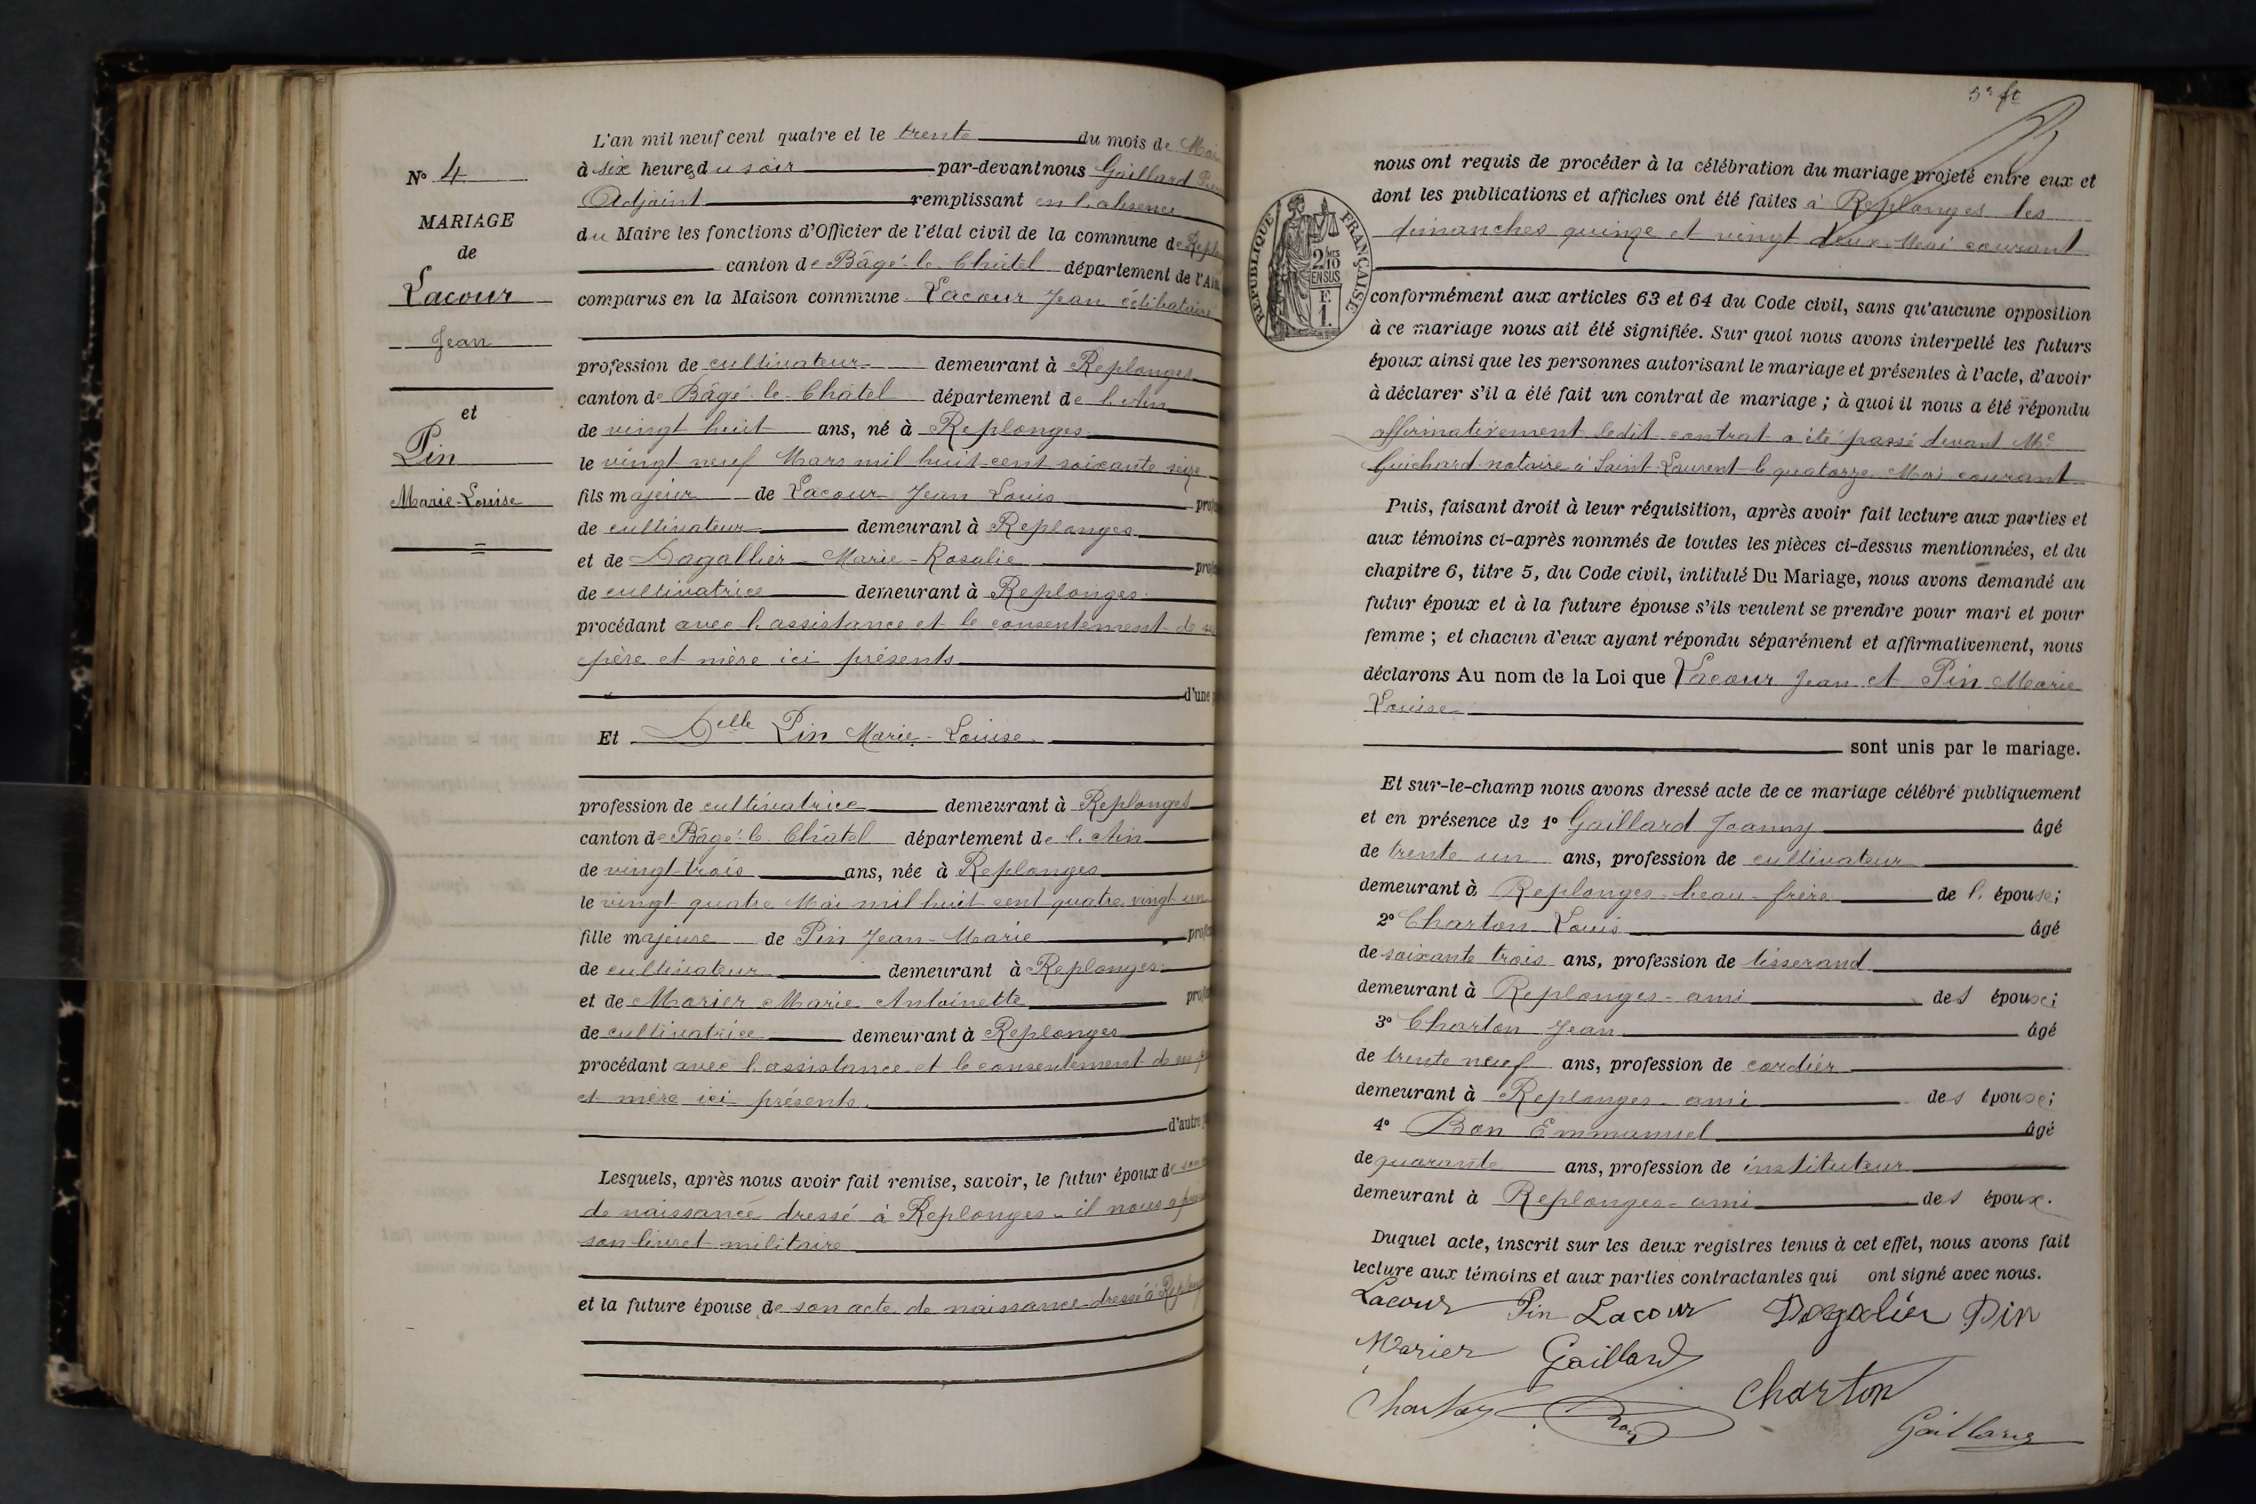 N° 4
MARIAGE
de
Lacour
Jean
et
Pin
Marie-Louise
L'an mil neuf cent quatre et le trente du mois de Mai
à six heures du soir par-devant nous Gaillard
Adjoint remplissant en l'absence
du Maire les fonctions d'Officier de l'état civil de la commune de Repl
canton de Bâgé-le-Châtel département de l'Ain
comparus en la Maison commune Lacour Jean célibataire
profession de cultivateur demeurant à Replonges
canton de Bâgé-le-Châtel département de l'Ain
de vingt huit ans, né à Replonges
le vingt neuf Mars mil huit cent soixante seize
fils majeur de Lacour Jean Louis prof
de cultivateur demeurant à Replonges
et de Dagallier Marie-Rosalie prof
de cultivatrice demeurant à Replonges
procédant avec l'assistance et le consentement de
père et mère ici présents
d'une
Et Delle Pin Marie-Louise
profession de cultivatrice demeurant à Replonges
canton de Bâgé-le-Châtel département de l'Ain
de vingt-trois ans, née à Replonges
le vingt quatre Mai mil huit cent quatre vingt un
fille majeure de Pin Jean-Marie prof
de cultivateur demeurant à Replonges
et de Morier Marie Antoinette prof
de cultivatrice demeurant à Replonges
procédant avec l'assistance et le consentement de
et mère ici présents.
d'autre
Lesquels, après nous avoir fait remise, savoir, le futur époux de son
de naissance dressé à Replonges - il nous a
son livret militaire
et la future épouse de son acte de naissance dressé à Repl
nous ont requis de procéder à la célébration du mariage projeté entre eux et
dont les publications et affiches ont été faites à Replonges les
dimanches quinze et vingt deux Mai courant
RÉPUBLIQUE FRANÇAISE
2 10
EN SUS
F.
1.
conformément aux articles 63 et 64 du Code civil, sans qu'aucune opposition
à ce mariage nous ait été signifiée. Sur quoi nous avons interpellé les futurs
époux ainsi que les personnes autorisant le mariage et présentes à l'acte, d'avoir
à déclarer s'il a été fait un contrat de mariage ; à quoi il nous a été répondu
affirmativement ledit contrat a été passé devant Me
Guichard notaire à Saint-Laurent le quatorze Mai courant
Puis, faisant droit à leur réquisition, après avoir fait lecture aux parties et
aux témoins ci-après nommés de toutes les pièces ci-dessus mentionnées, et du
chapitre 6, titre 5, du Code civil, intitulé Du Mariage, nous avons demandé au
futur époux et à la future épouse s'ils veulent se prendre pour mari et pour
femme ; et chacun d'eux ayant répondu séparément et affirmativement, nous
déclarons Au nom de la Loi que Lacour Jean et Pin Marie
Louise
sont unis par le mariage.
Et sur-le-champ nous avons dressé acte de ce mariage célébré publiquement
et en présence de 1° Gaillard Joanny âgé
de trente un ans, profession de cultivateur
demeurant à Replonges - beau-frère de l'épouse;
2° Charton Louis âgé
de soixante trois ans, profession de tisserand
demeurant à Replonges - ami des époux;
3° Charton Jean âgé
de trente neuf ans, profession de cordier
demeurant à Replonges - ami des époux;
4° Bon Emmanuel âgé
de quarante ans, profession de instituteur
demeurant à Replonges - ami des époux.
Duquel acte, inscrit sur les deux registres tenus à cet effet, nous avons fait
lecture aux témoins et aux parties contractantes qui ont signé avec nous.
Lacour Pin Lacour Dagalier Pin
Morier Gaillard
Charton Bon Charton
Gaillard